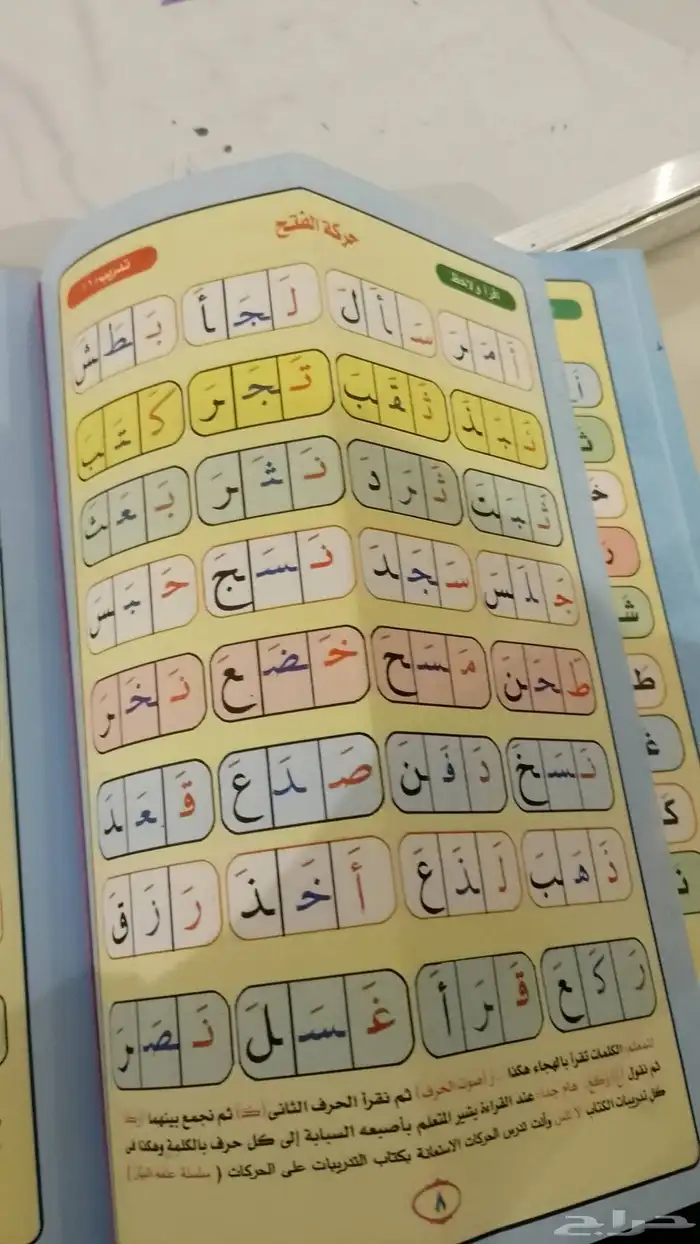 حركة الفتح
اقرأ ولاحظ
تدريب (١)
أَمَرَ سَأَلَ لَجَأَ بَطَشَ
نَبَذَ ثَقَبَ تَجَرَ كَتَبَ
ثَبَتَ ثَرَدَ نَثَرَ بَعَثَ
جَلَسَ سَجَدَ نَسَجَ حَبَسَ
طَحَنَ مَسَحَ خَضَعَ نَخَرَ
نَسَخَ دَفَنَ صَدَعَ قَعَدَ
ذَهَبَ لَذَعَ أَخَذَ رَزَقَ
رَكَعَ قَرَأَ غَسَلَ نَصَرَ
للمعلم: الكلمات تقرأ بالهجاء هكذا (أصوت الحرف) ثم نقرأ الحرف الثانى (كَ) ثم نجمع بينهما
ثم نقول (ع) ركع. هام جدا: عند القراءة يشير المتعلم بأصبعه السبابة إلى كل حرف بالكلمة وهكذا فى
كل تدريبات الكتاب وأنت تدرس الحركات الاستعانة بكتاب التدريبات على الحركات (سلسلة
٨
حراج